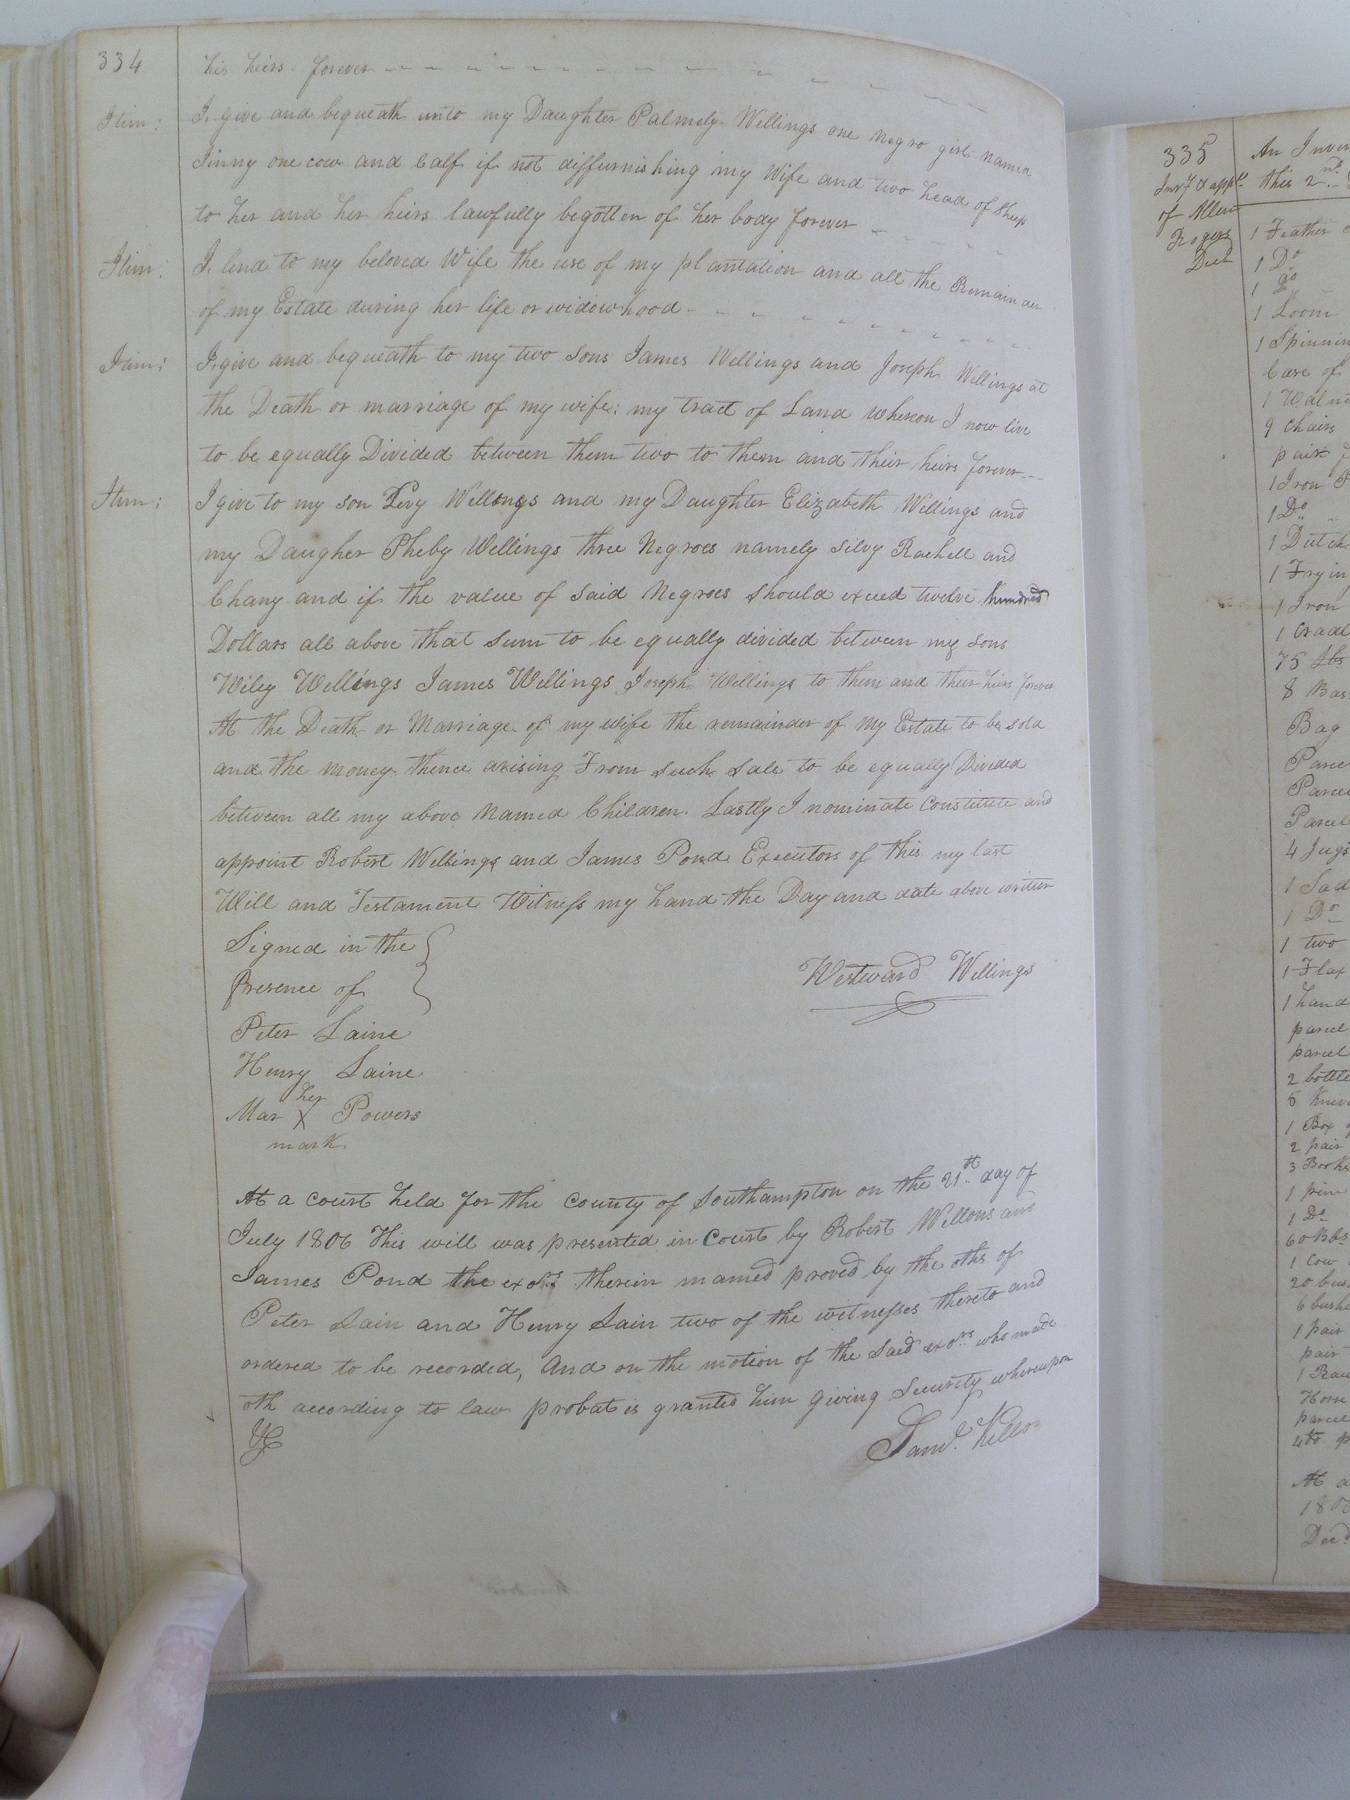 334
his heirs forever
Itim: I give and bequeath unto my Daughter Palmely Wellings one negro girl named
Jinny one cow and Calf if not diffurnishing my Wife and two head of Sheep
to her and her heirs lawfully begotten of her body forever
Itim: I lend to my beloved Wife the use of my plantation and all the Remainder
of my Estate during her life or widowhood
Itim: I give and bequeath to my two Sons James Wellings and Joseph Wellings at
the Death or marriage of my wife: my tract of Land whereon I now live
to be equally Divided between them two to them and their heirs forever
Itim: I give to my son Levy Wellongs and my Daughter Elizabeth Wellings and
my Daugher Pheby Wellings three Negroes namely Silvy Rachell and
Chany and if the value of said Negroes should exceed twelve hundred
Dollars all above that sum to be equally divided between my sons
Wiley Wellings James Wellings Joseph Wellings to them and their heirs forever
At the Death or Marriage of my wife the remainder of my Estate to be sold
and the money thence arising From such sale to be equally Divided
between all my above Named Children. Lastly I nominate Constitute and
appoint Robert Wellings and James Pond Executors of this my last
Will and Testament Witness my hand the Day and date above written
Signed in the
Presence of
Westward Wellings
Peter Laine
Henry Laine
her
Mar X Powers
mark
At a Court held for the County of Southampton on the 21st day of
July 1806 This will was presented in Court by Robert Wellons and
James Pond the exors therein named proved by the oths of
Peter Lain and Henry Lain two of the witnesses thereto and
ordered to be recorded, And on the motion of the said exors who made
oth according to law probat is granted him giving Security whereupon
Saml. Kello
335
Invy & appt
of Allen
Rogers
Decd
An Inven
this 2nd
1 Feather
1 Do
1 Do
1 Loom
1 Spinnin
Case of
1 Walnu
9 Chairs
pair
1 Iron P
1 Do
1 Dutch
1 Fryin
1 Iron
1 Cradl
75 lbs
8 Bas
Bag
Parce
Parcel
Parcel
4 Jugs
1 Sad
1 Do
1 two
1 Flax
1 hand
parcel
parcel
2 bottle
5 Knive
1 Box
2 pair
3 Books
1 pine
1 Do
60 Bbs
1 Cow
20 bus
6 bushe
1 pair
pair
1 Raw
Horse
parcel
400 p
At a
180
Decd